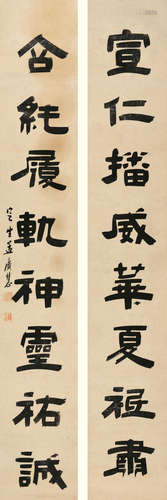 宣仁播威華夏祗肅
合純履軌神靈祐誠